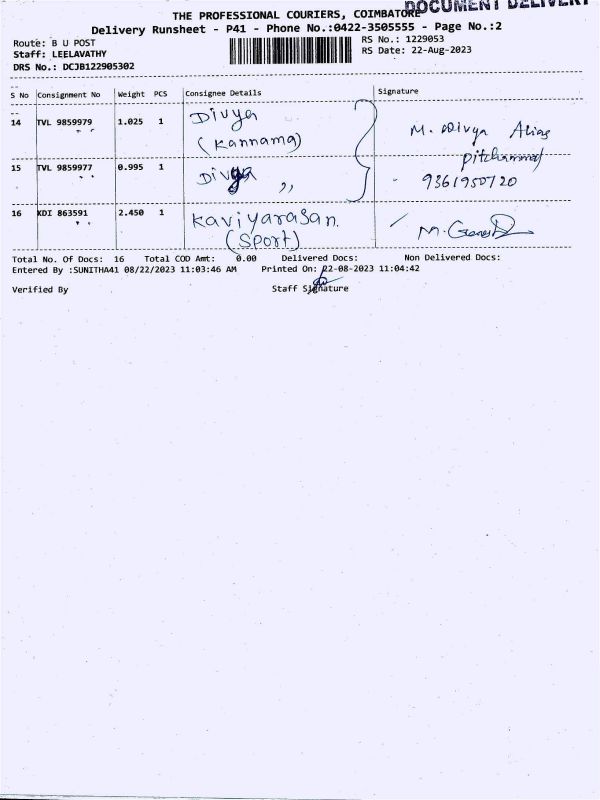 DOCUMENT DELIVERY
THE PROFESSIONAL COURIERS, COIMBATORE
Delivery Runsheet - P41 - Phone No.:0422-3505555 - Page No.:2
Route: B U POST
Staff: LEELAVATHY
DRS No.: DCJB122905302
RS No.: 1229053
RS Date: 22-Aug-2023
S No Consignment No Weight PCS Consignee Details Signature
14 TVL 9859979 1.025 1 Divya M. Divya Alias
(Kannama)
15 TVL 9859977 0.995 1 Divya ,, 9361950720
16 KDI 863591 2.450 1 Kaviyarasan.
(Sport)
Total No. Of Docs: 16 Total COD Amt: 0.00 Delivered Docs: Non Delivered Docs:
Entered By :SUNITHA41 08/22/2023 11:03:46 AM Printed On: 22-08-2023 11:04:42
Verified By Staff Signature